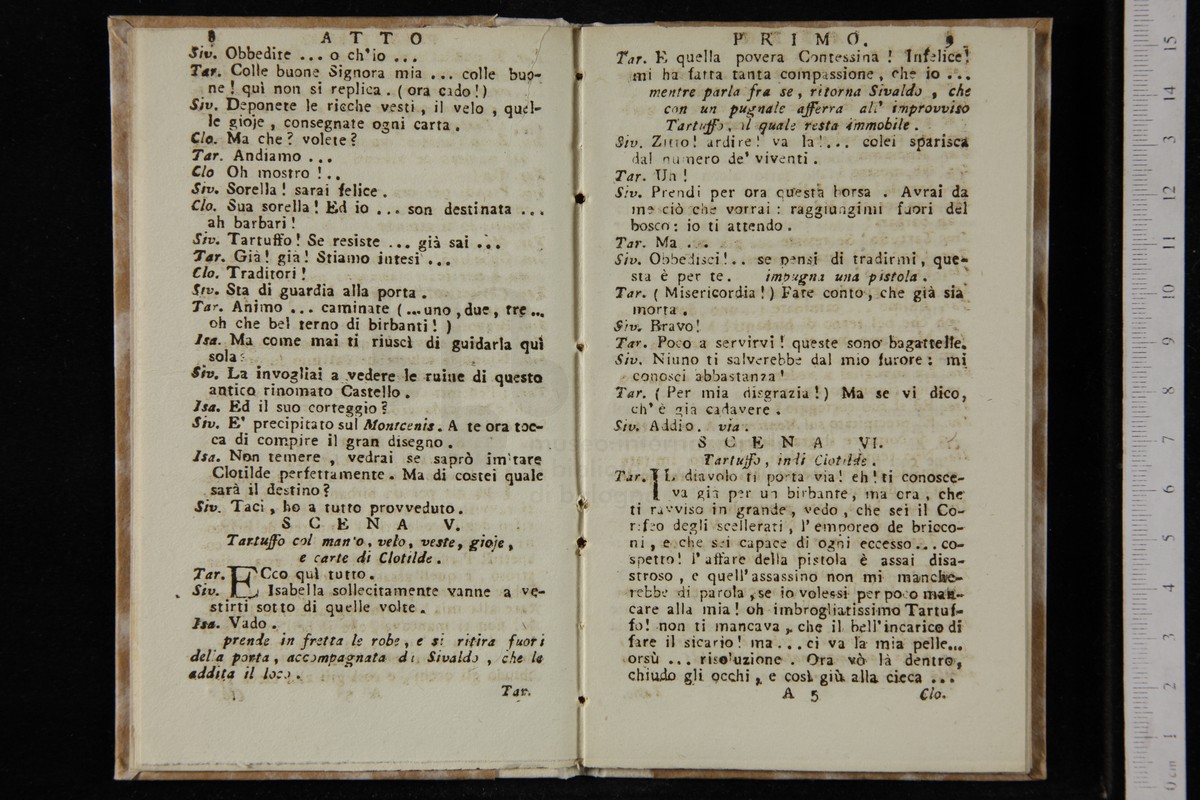 8 A T T O
Siv. Obbedite ... o ch'io ...
Tar. Colle buone Signora mia ... colle buo-
ne! quì non si replica. (ora cado!)
Siv. Deponete le ricche vesti, il velo, quel-
le gioje, consegnate ogni carta.
Clo. Ma che? volete?
Tar. Andiamo ...
Clo Oh mostro!..
Siv. Sorella! sarai felice.
Clo. Sua sorella! Ed io ... son destinata ...
ah barbari!
Siv. Tartuffo! Se resiste ... già sai ...
Tar. Già! già! Stiamo intesi ...
Clo. Traditori!
Siv. Sta di guardia alla porta.
Tar. Animo ... caminate (...uno, due, tre ...
oh che bel terno di birbanti!)
Isa. Ma come mai ti riuscì di guidarla quì
sola?
Siv. La invogliai a vedere le ruine di questo
antico rinomato Castello.
Isa. Ed il suo corteggio?
Siv. E' precipitato sul Montcenis. A te ora toc-
ca di compire il gran disegno.
Isa. Non temere, vedrai se saprò imitare
Clotilde perfettamente. Ma di costei quale
sarà il destino?
Siv. Taci, ho a tutto provveduto.
S C E N A V.
Tartuffo col manto, velo, veste, gioje,
e carte di Clotilde.
Tar. ECco quì tutto.
Siv. Isabella sollecitamente vanne a ve-
stirti sotto di quelle volte.
Isa. Vado.
prende in fretta le robe, e si ritira fuori
della porta, accompagnata di Sivaldo, che le
addita il loco.
Tar.
P R I M O. 9
Tar. E quella povera Contessina! Infelice!
mi ha fatta tanta compassione, che io ...
mentre parla fra se, ritorna Sivaldo, che
con un pugnale afferra all' improvviso
Tartuffo, il quale resta immobile.
Siv. Zitto! ardire! va la!... colei sparisca
dal numero de' viventi.
Tar. Un!
Siv. Prendi per ora questa borsa. Avrai da
me ciò che vorrai: raggiungimi fuori del
bosco: io ti attendo.
Tar. Ma ...
Siv. Obbedisci!.. se pensi di tradirmi, que-
sta è per te. impugna una pistola.
Tar. (Misericordia!) Fate conto, che già sia
morta.
Siv. Bravo!
Tar. Poco a servirvi! queste sono bagattelle.
Siv. Niuno ti salverebbe dal mio furore: mi
conosci abbastanza!
Tar. (Per mia disgrazia!) Ma se vi dico,
ch' è già cadavere.
Siv. Addio. via.
S C E N A VI.
Tartuffo, indi Clotilde.
Tar. IL diavolo ti porta via! eh! ti conosce-
va già per un birbante, ma ora, che
ti ravviso in grande, vedo, che sei il Co-
rifeo degli scellerati, l' emporeo de bricco-
ni, e che sei capace di ogni eccesso... co-
spetto! l' affare della pistola è assai disa-
stroso, e quell' assassino non mi manche-
rebbe di parola, se io volessi per poco man-
care alla mia! oh imbrogliatissimo Tartuf-
fo! non ti mancava, che il bell' incarico di
fare il sicario! ma... ci va la mia pelle...
orsù ... risoluzione. Ora vò là dentro,
chiudo gli occhi, e così giù alla cieca ...
A 5 Clo.